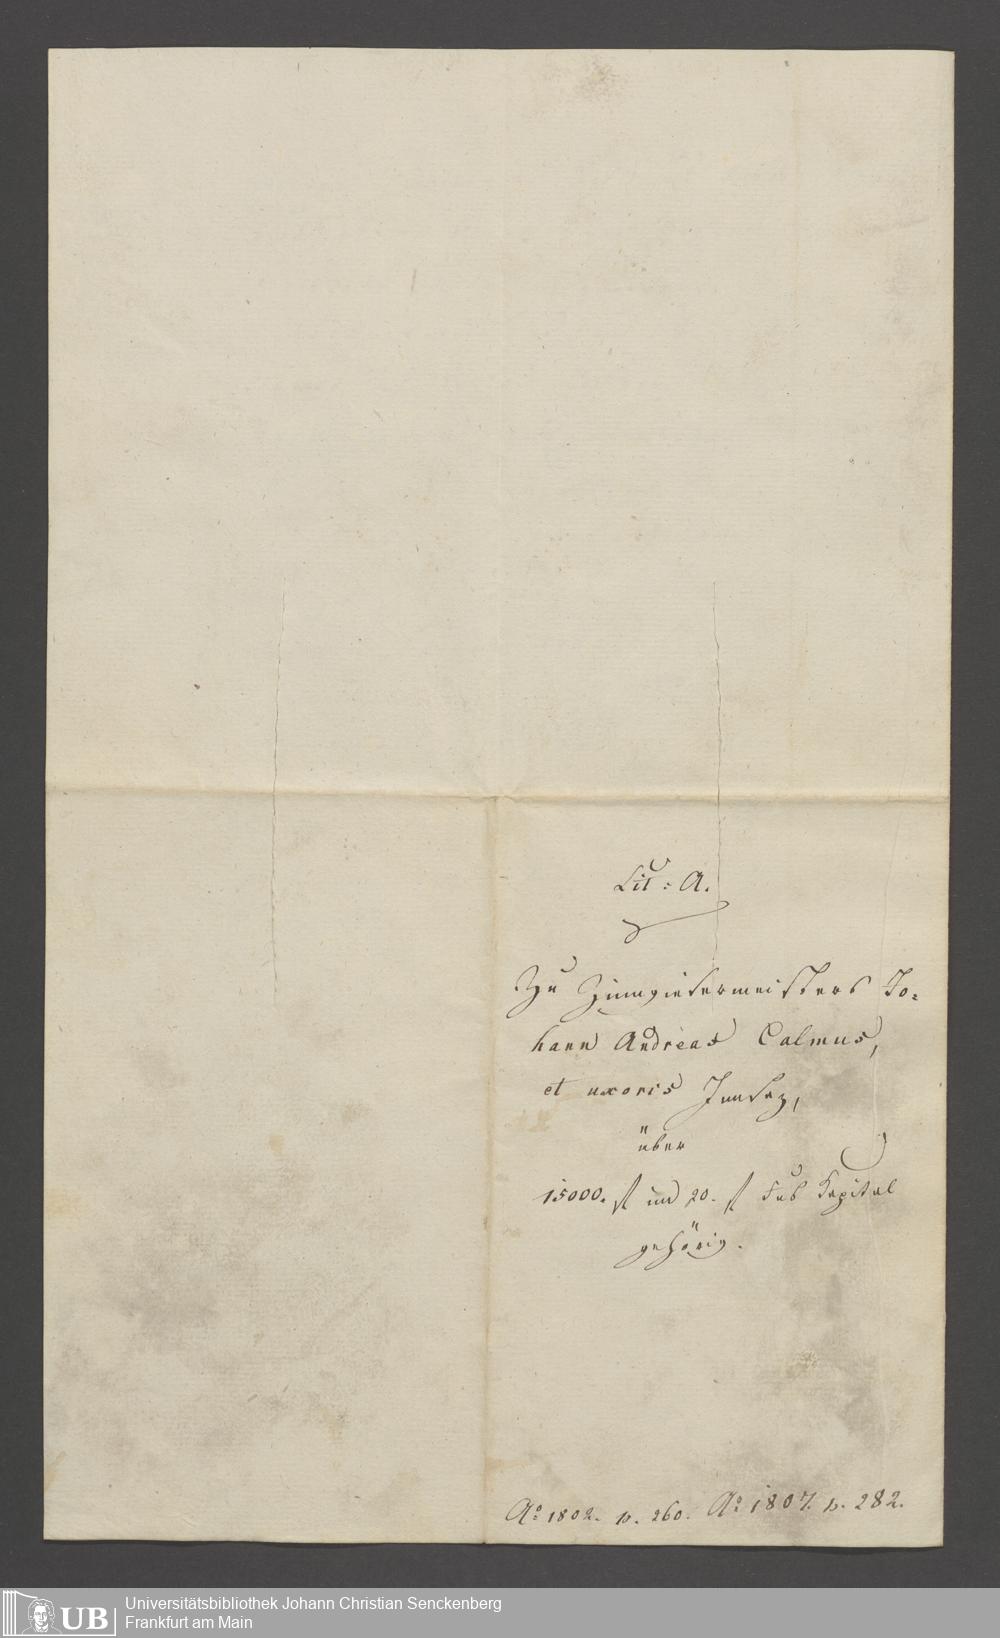 Lit: A.
Zu Zinngiesermeisters Jo-
hann Andreas Calmus,
et uxoris Insaz,
über
15000. fl im 20. fl Fus Kapital
gehörig.
Ao: 1802. p. 260. Ao: 1807. p. 282.
UB
Universitätsbibliothek Johann Christian Senckenberg
Frankfurt am Main